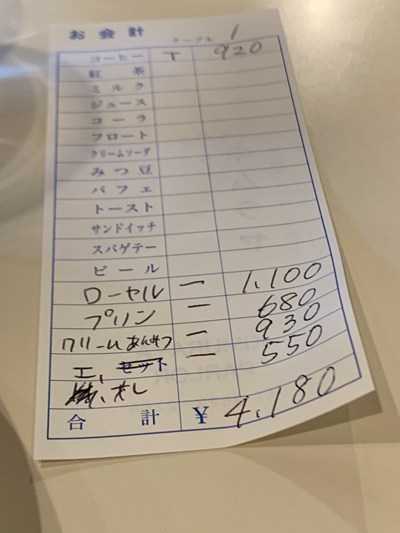 お会計 テーブル 1
コーヒー T 920
紅茶
ミルク
ジュース
コーラ
フロート
クリームソーダ
みつ豆
パフェ
トースト
サンドイッチ
スパゲテー
ビール
ローヤル 一 1,100
プリン 一 680
クリームあんみつ 一 930
エ、セット 一 550
合計 ¥ 4,180